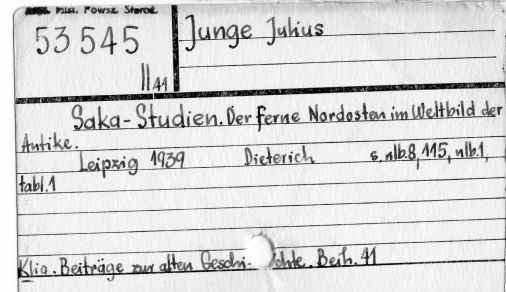 Hist. Powsz. Staroż.
53 545
II 41
Junge Julius
Saka-Studien. Der ferne Nordosten im Weltbild der
Antike.
Leipzig 1939 Dieterich s. nlb. 8, 115, nlb. 1,
tabl. 1
Klio. Beiträge zur alten Geschi- chte. Beih. 41